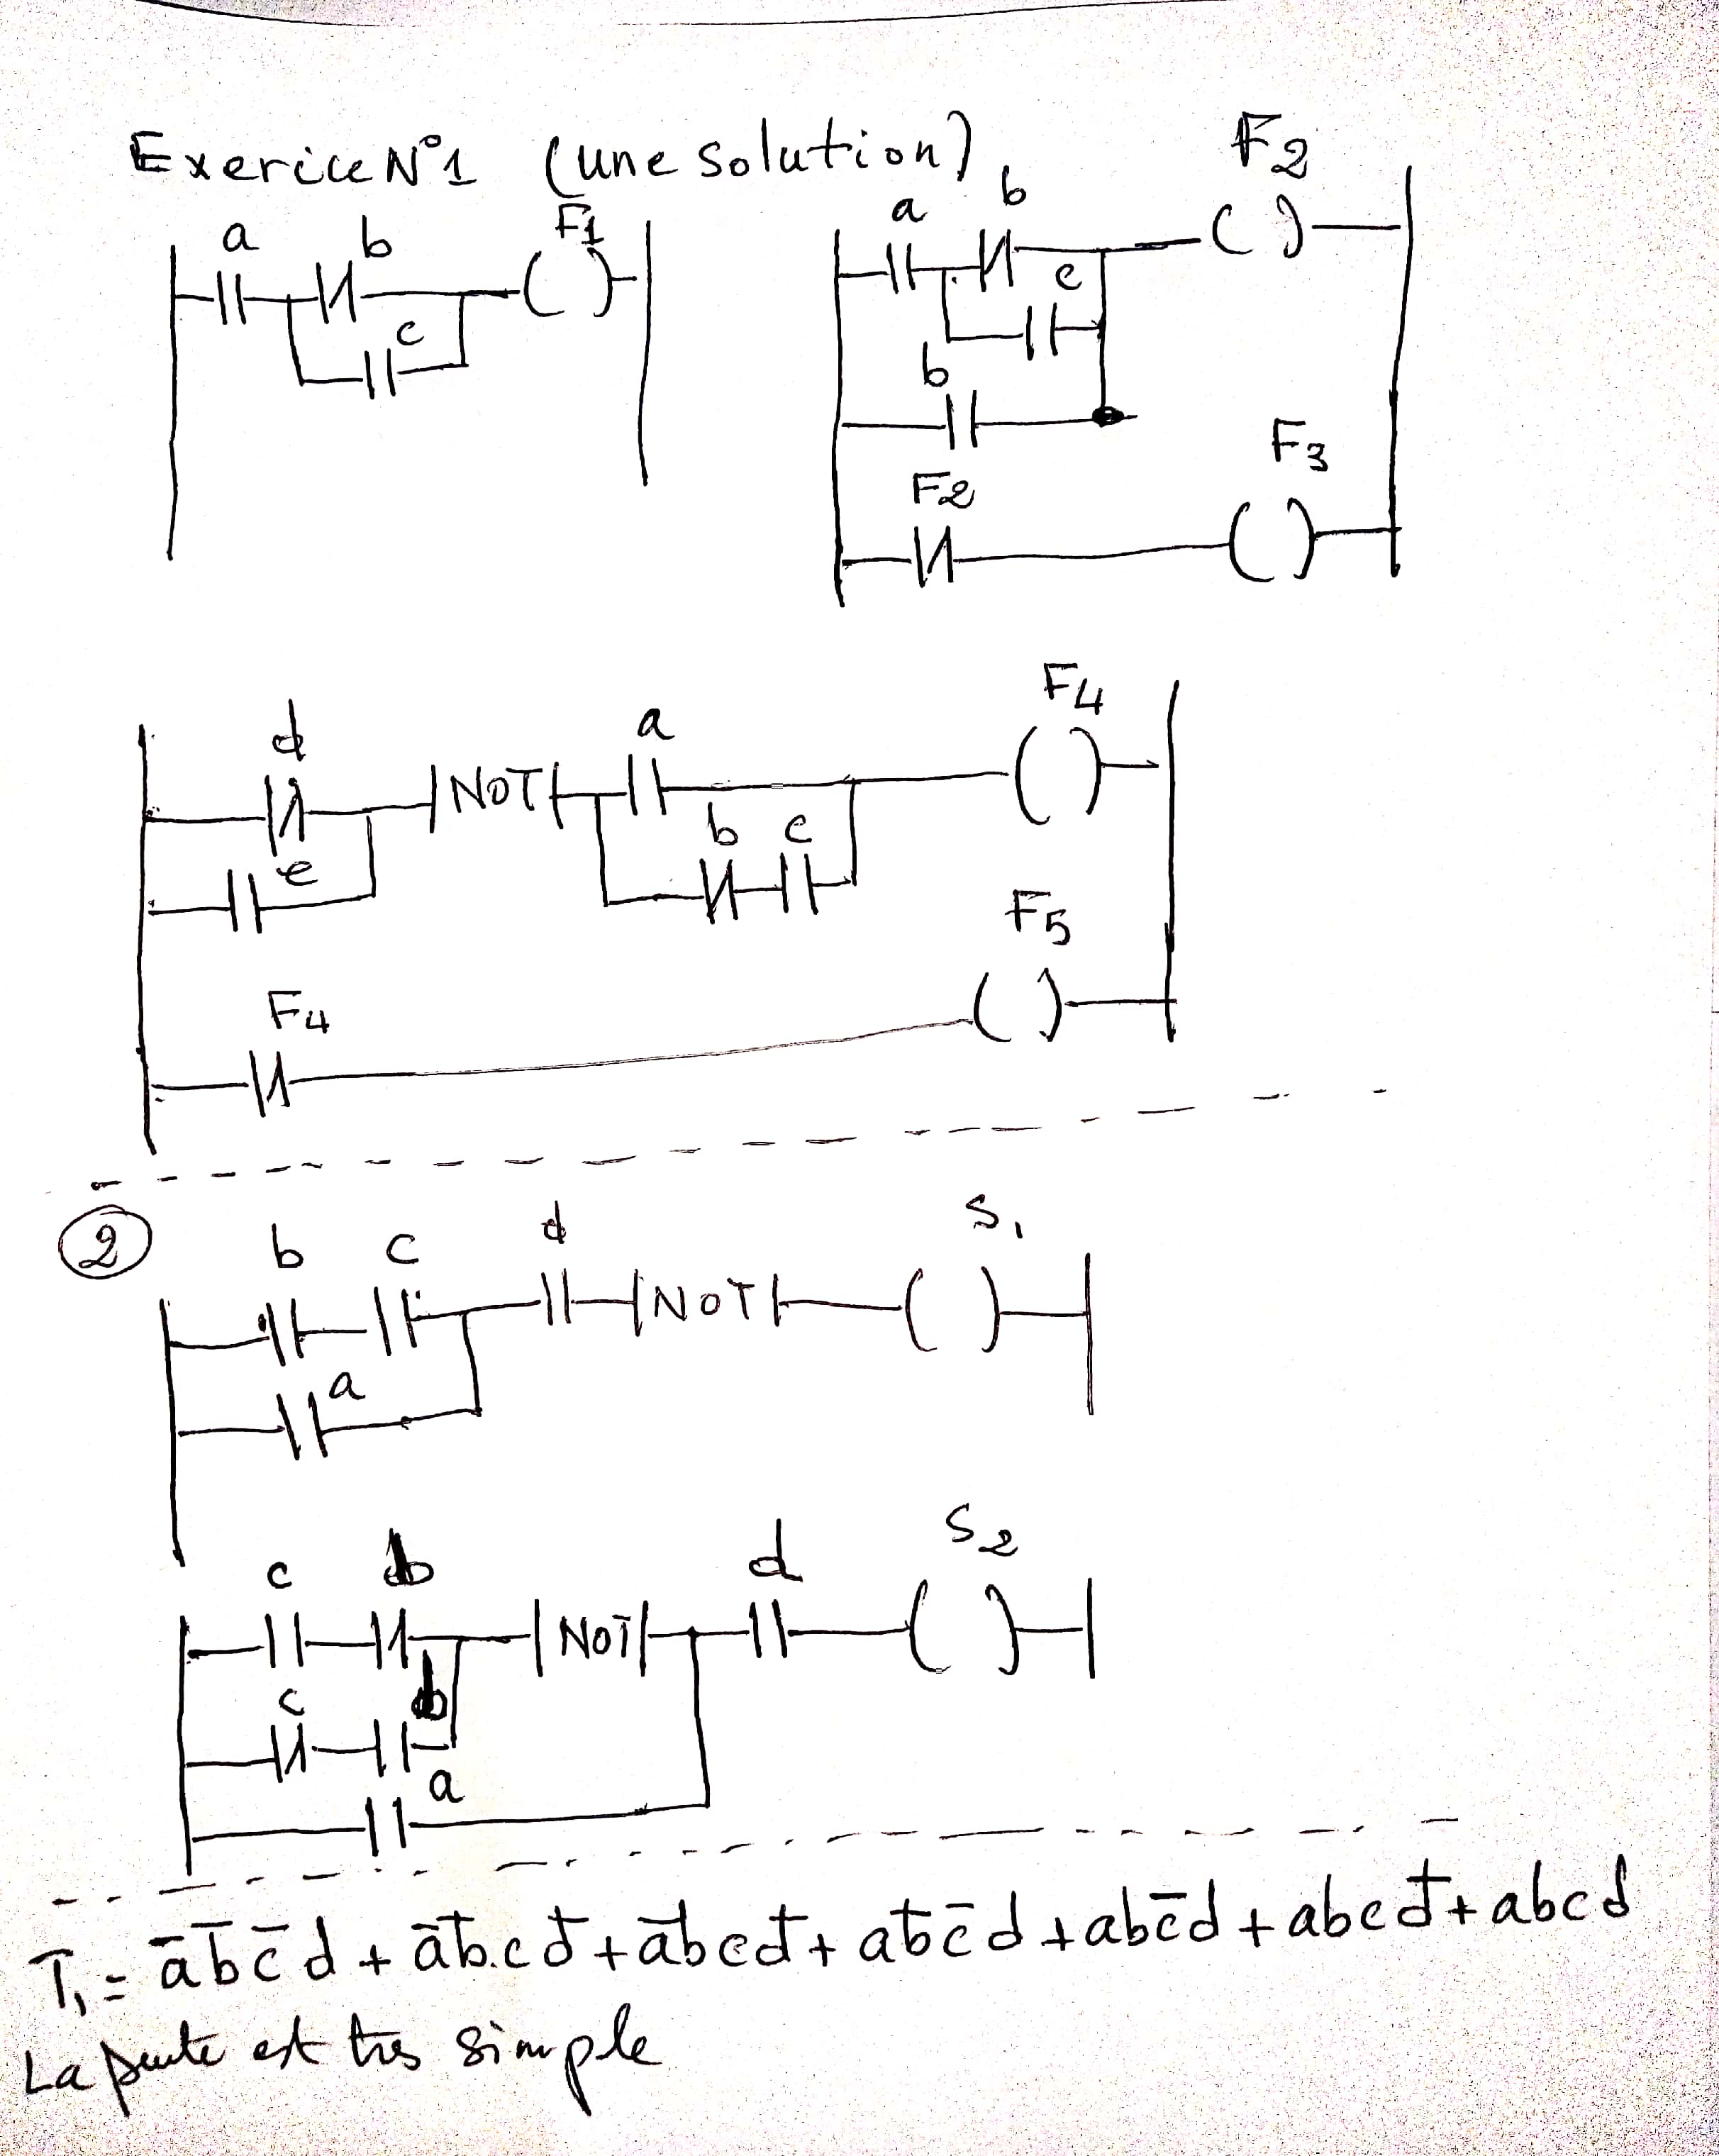 Exerice N°1 (une solution)
a b F1
c
a b F2
c
b
F2 F3
d NOT a F4
e b c
F4 F5
2
b c d NOT S1
a
c b NOT d S2
c b
a
T1 = a̅b̅c̅d + a̅b̅.cd̅ + a̅bcd̅ + ab̅c̅d + abc̅d + abcd̅ + abcd
La suite est très simple